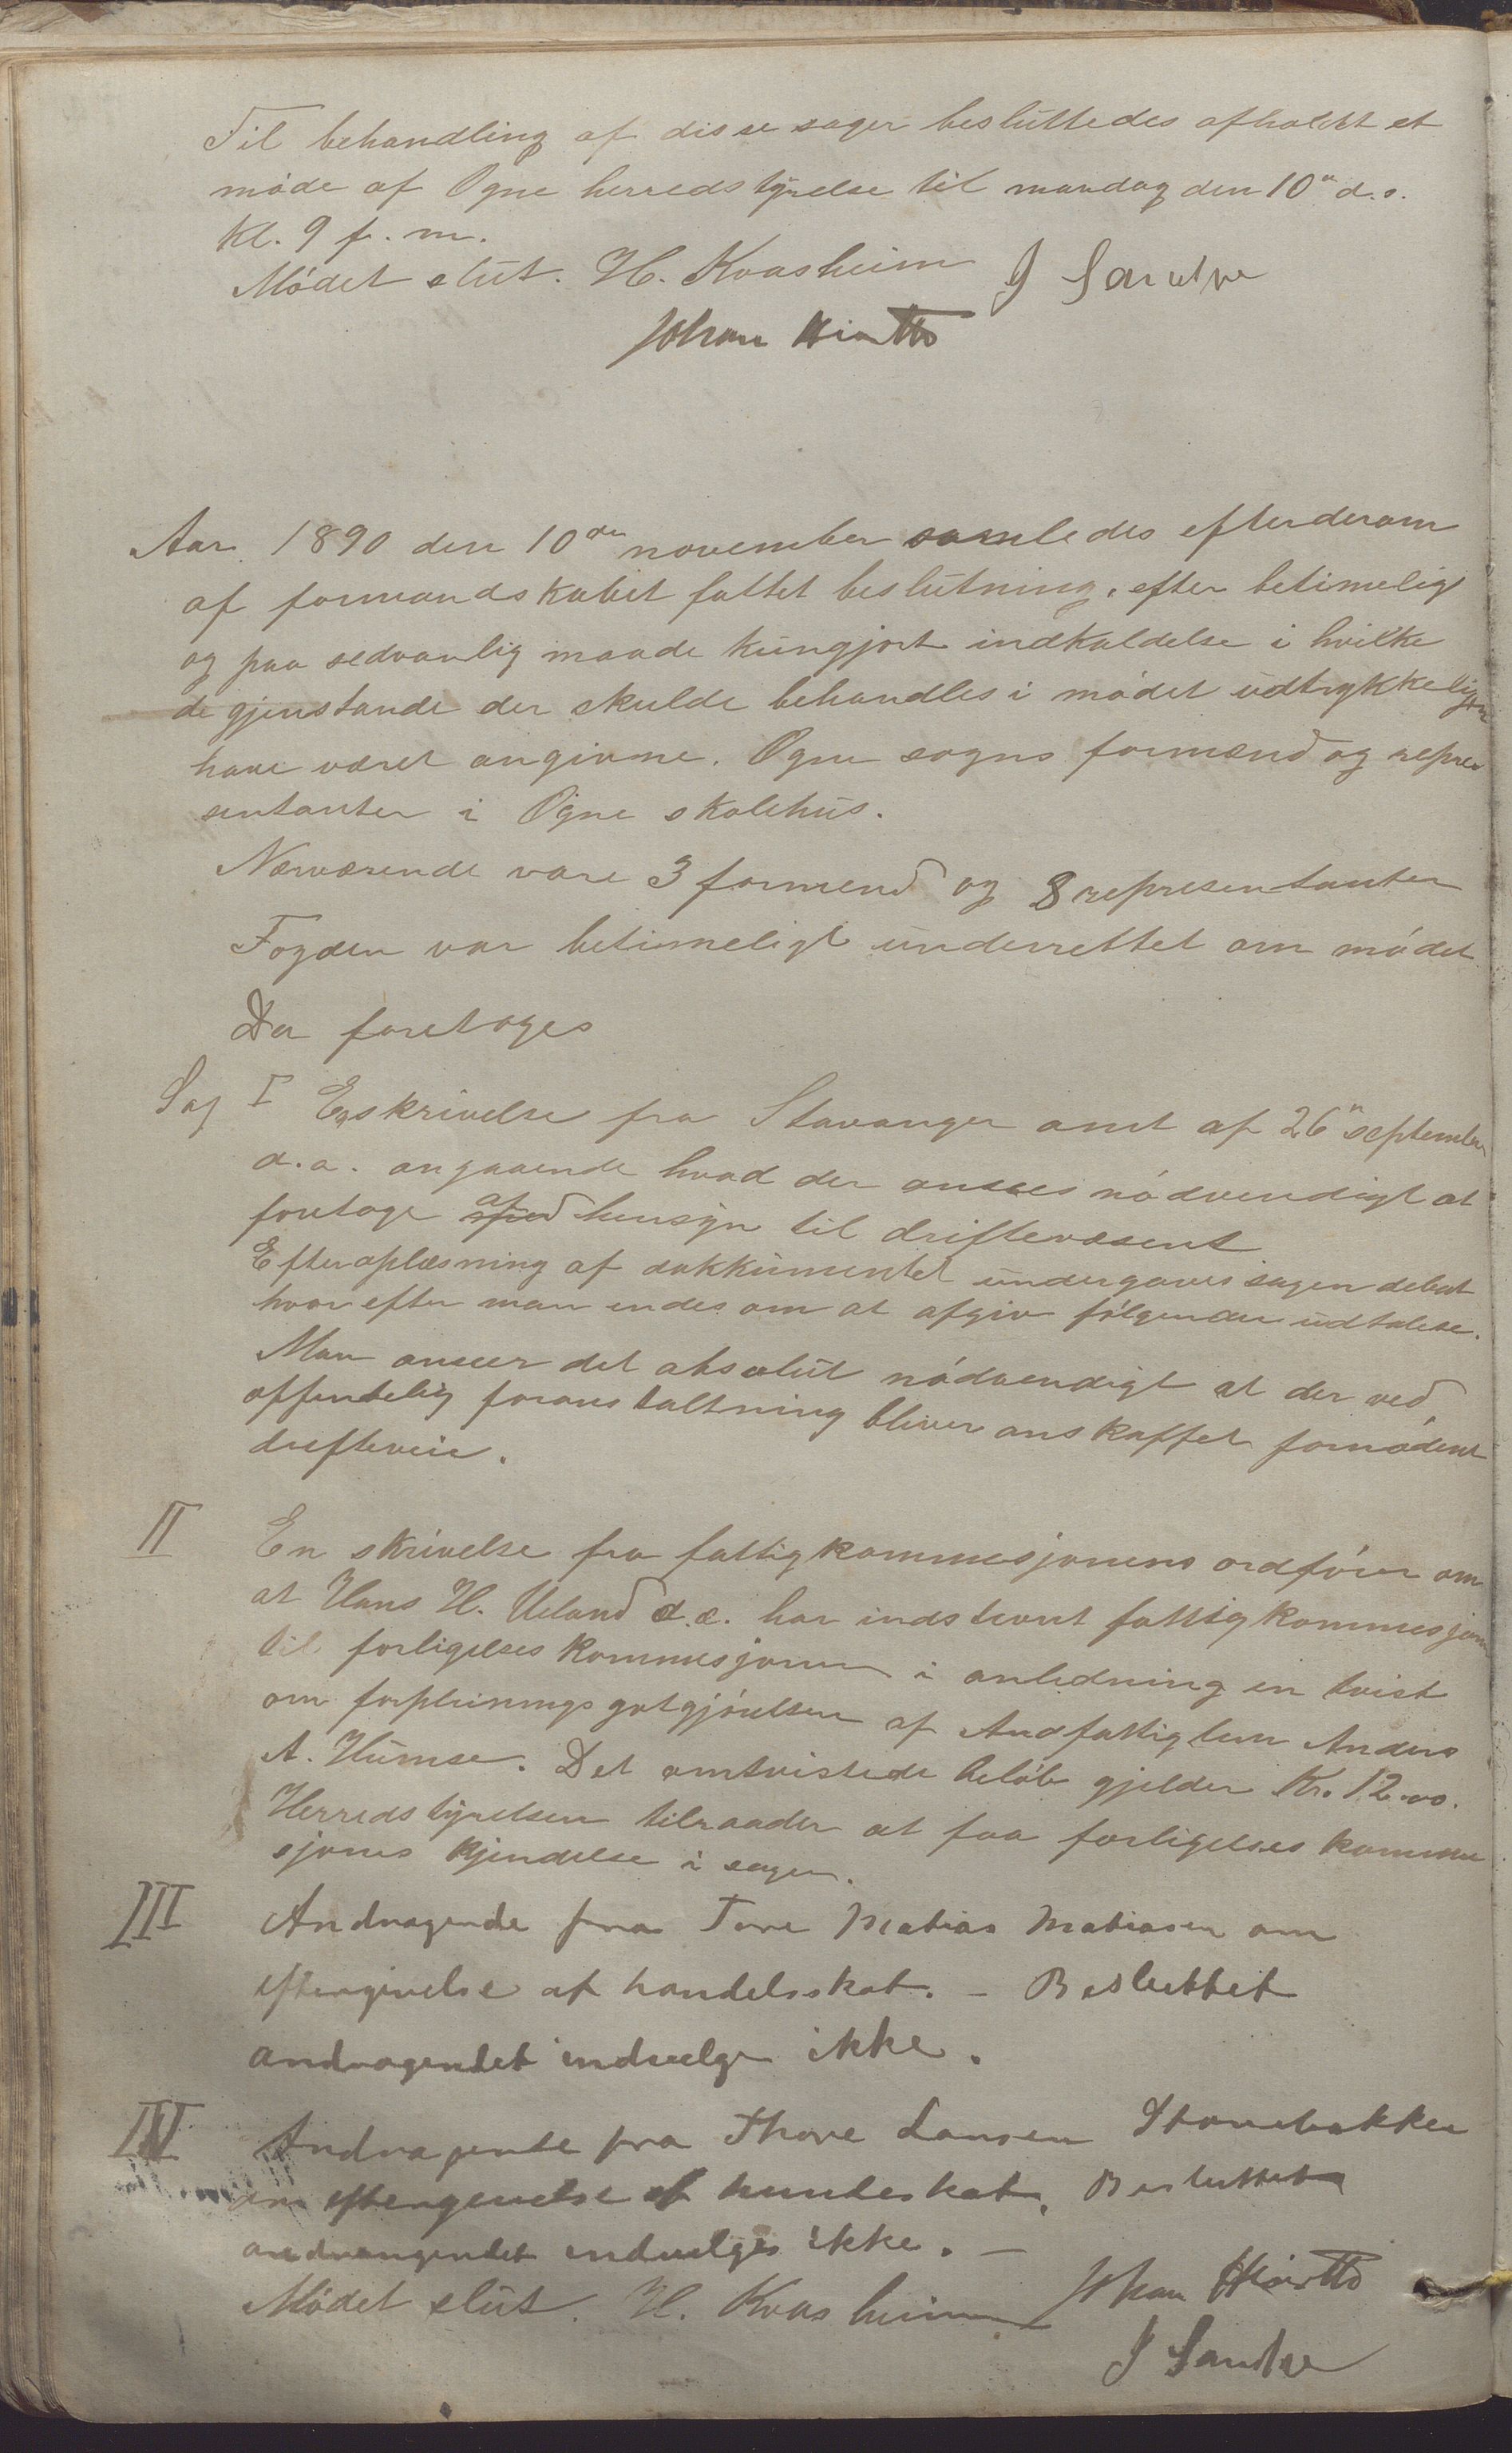 Til behandling af disse sager besluttedes afholdt et
møde af Ogne herredstyrelse til mandag den 10de d.s.
Kl. 9 f. m.
Mødet slut. H. Kvasheim J Sandve
Johan Hiorth
Aar 1890 den 10de november samledes efter derom
af formandskabet fattet beslutning, efter betimelig
og paa sedvanlig maade kungjort indkaldelse i hvilke
de gjenstande der skulde behandles i mødet udtrykkeligen
have været angivne. Ogne sogns formænd og repræ
sentanter i Ogne skolehus.
Nærværende vare 3 formend og 8 representanter
Fogden var betimeligt underrettet om mødet
Da foretoges
Sag I En skrivelse fra Stavanger amt af 26n september
d.a. angaaende hvad der ansees nødvendigt at
foretage af hensyn til driftevæsent
Efter oplæsning af dokkumentet undergaves sagen debat
hvorefter man endes om at afgive følgende udtalelse.
Man anseer det absolut nødvendigt at der ved
offentelig foranstaltning bliver anskaffet fornødent
drifteveie.
II En skrivelse fra fattigkommesjonens ordfører om
at Hans H. Ueland d.æ. har indstevnt fattigkommesjonen
til forligelseskommesjonen i anledning en tvist
om forpleiningsgotgjørelsen af Andfattiglem Anders
A. Humse. Det omtvistede beløb gjelder Kr. 12.00.
Herredstyrelsen tilraader at faa forligelses komme
sjones kjendelse i sagen.
III Andragende fra Tore Matias Matiasen om
eftergivelse af handelsskat. – Besluttet
andragendet indvelges ikke.
IV Andragende fra Thore Larsen Stornebakken
om eftergivelse af hundeskat. Besluttet
andrangendet indvelges ikke. –
Mødet slut. H. Kvasheim Johan Hiorth
J Sandve